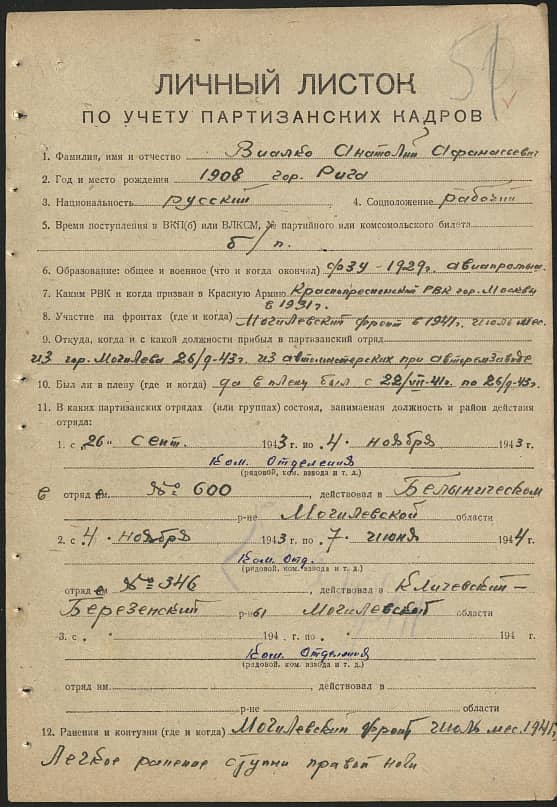 51
ЛИЧНЫЙ ЛИСТОК
ПО УЧЕТУ ПАРТИЗАНСКИХ КАДРОВ
1. Фамилия, имя и отчество Виалко Анатолий Афанасьевич
2. Год и место рождения 1908 гор. Рига
3. Национальность русский 4. Соцположение рабочий
5. Время поступления в ВКП(б) или ВЛКСМ, № партийного или комсомольского билета
б/п.
6. Образование: общее и военное (что и когда окончил) ФЗУ-1929г. авиапромыш.
7. Каким РВК и когда призван в Красную Армию Краснопресненский РВК гор. Москвы
в 1931г.
8. Участие на фронтах (где и когда) Могилевский фронт в 1941г. июль мес.
9. Откуда, когда и с какой должности прибыл в партизанский отряд
из гор. Могилева 26/9-43г. из автомастерских при авторемзаводе
10. Был ли в плену (где и когда) да в плену был с 22/VII-41г. по 26/9-43г.
11. В каких партизанских отрядах (или группах) состоял, занимаемая должность и район действия
отряда:
1. с „26" сент. 1943 г. по „4" ноября 1943 г.
Ком. Отделения
(рядовой, ком. взвода и т. д.)
в отряд им. № 600, действовал в Белыническом
р-не Могилевской области
2. с „4" ноября 1943 г. по „7" июня 1944 г.
Ком. Отд.
(рядовой, ком. взвода и т. д.)
отряд в № 346 действовал в Кличевский-
Березенский р-ны Могилевской области
3. с „ " 194 г. по „ " 194 г.
Ком. Отделения
(рядовой, ком. взвода и т. д.)
отряд им. , действовал в
р-не области
12. Ранения и контузии (где и когда) Могилевский фронт июль мес. 1941г.
Легкое ранение ступни правой ноги